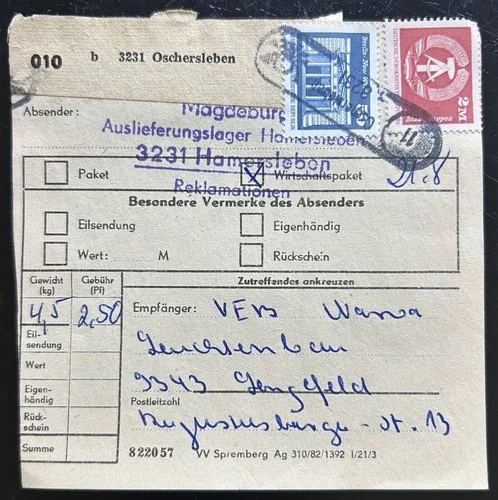 010 b 3231 Oschersleben
Berlin - Neue Wache
50
DEUTSCHE DEMOKRATISCHE
2M
Staatswappen
Absender:
Magdeburg
Auslieferungslager Hamersleben
3231 Hamersleben
Reklamationen
Paket
Wirtschaftspaket
Besondere Vermerke des Absenders
Eilsendung
Eigenhändig
Wert: M
Rückschein
Gewicht (kg)
Gebühr (Pf)
Zutreffendes ankreuzen
4,5 2,50
Empfänger: VEB Wama
Eil-
sendung
Leuchtenbau
Wert
9343 Lengefeld
Eigen-
händig
Postleitzahl
Augustusburger-St. 13
Rück-
schein
Summe
822057 VV Spremberg Ag 310/82/1392 I/21/3